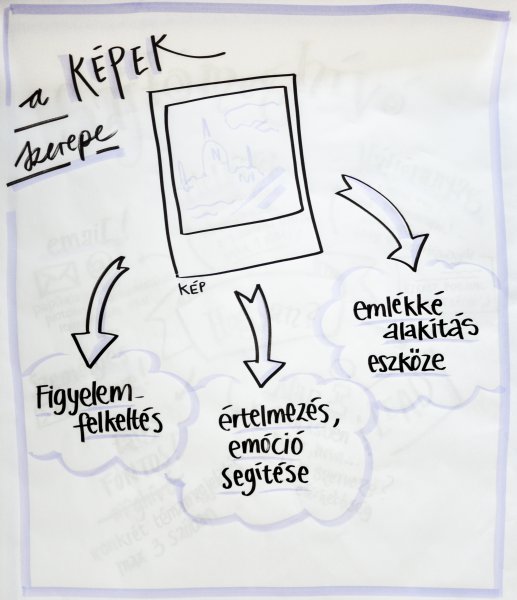 a KÉPEK
szerepe
KÉP
Figyelem-
felkeltés
értelmezés,
emóció
segítése
emlékké
alakítás
eszköze
email!